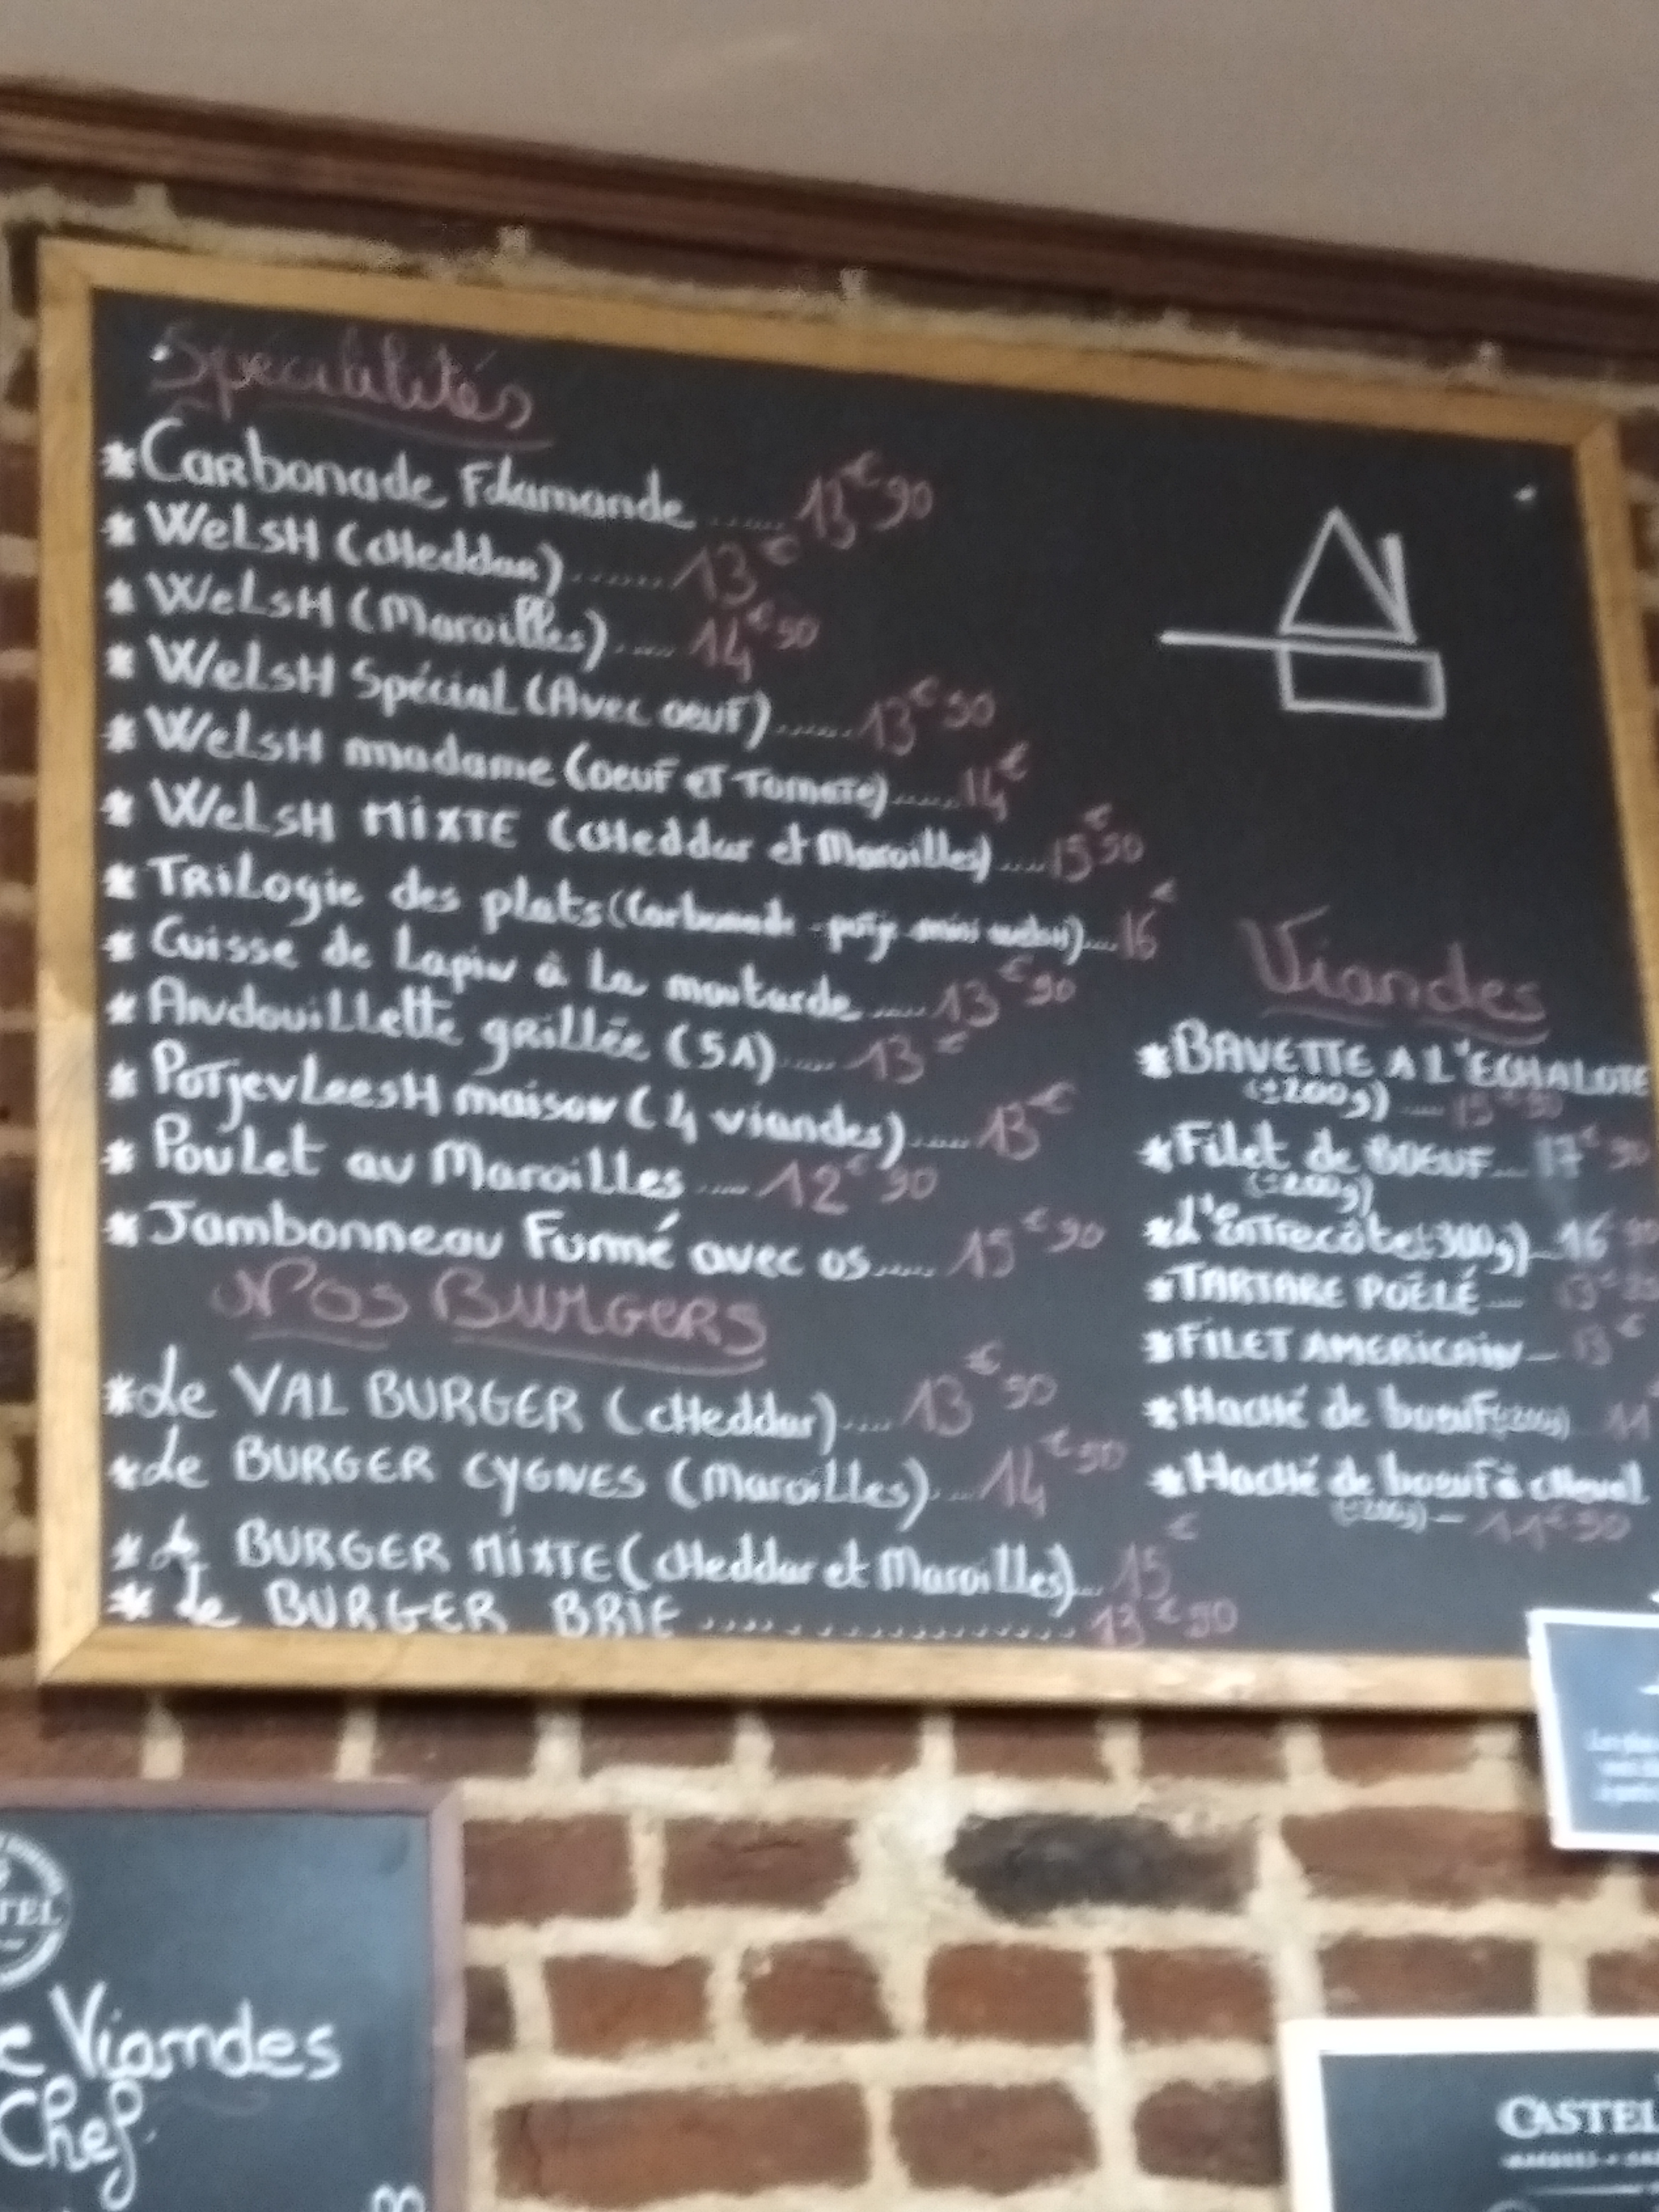 Spécialités
*Carbonade Flamande ...... 13€90
* WelsH (cHeddar) ....... 13€
* WelsH (Maroilles) ..... 14€90
* WelsH Spécial (Avec oeuf) ...... 13€90
* WelsH madame (oeuf et Tomate) ...... 14€
* WelsH MiXTE (cHeddar et Maroilles) .... 15€90
* TRiLogie des plats (Carbonade - potje - mini welsH) .... 16€
* Cuisse de Lapin à la moutarde ..... 13€90
* Andouillette grillée (5A) .... 13€
* PotjevLeesH maison (4 viandes) ..... 13€
* Poulet au Maroilles .... 12€90
* Jambonneau Fumé avec os ..... 15€90
Nos BURGERS
*Le VAL BURGER (cHeddar) .... 13€90
*Le BURGER CYGNES (Maroilles) .... 14€90
* Le BURGER MiXTE (cHeddar et Maroilles) ... 15€
* Le BURGER BRiE .................. 13€90
Viandes
*BAVETTE A L'ECHALOTE
(±200g) .... 15€90
*Filet de BOEUF ... 17€90
(±200g)
*L'Entrecôte (300g) .. 16 90
*TARTARE POÊLÉ ... 13€
*FiLET AMERICAiN _ 13€
*HacHé de boeuf (±200g) 11
*HacHé de boeuf à cHeval
(±200g) — 11€90
TEL
Viandes
Chef
CASTEL